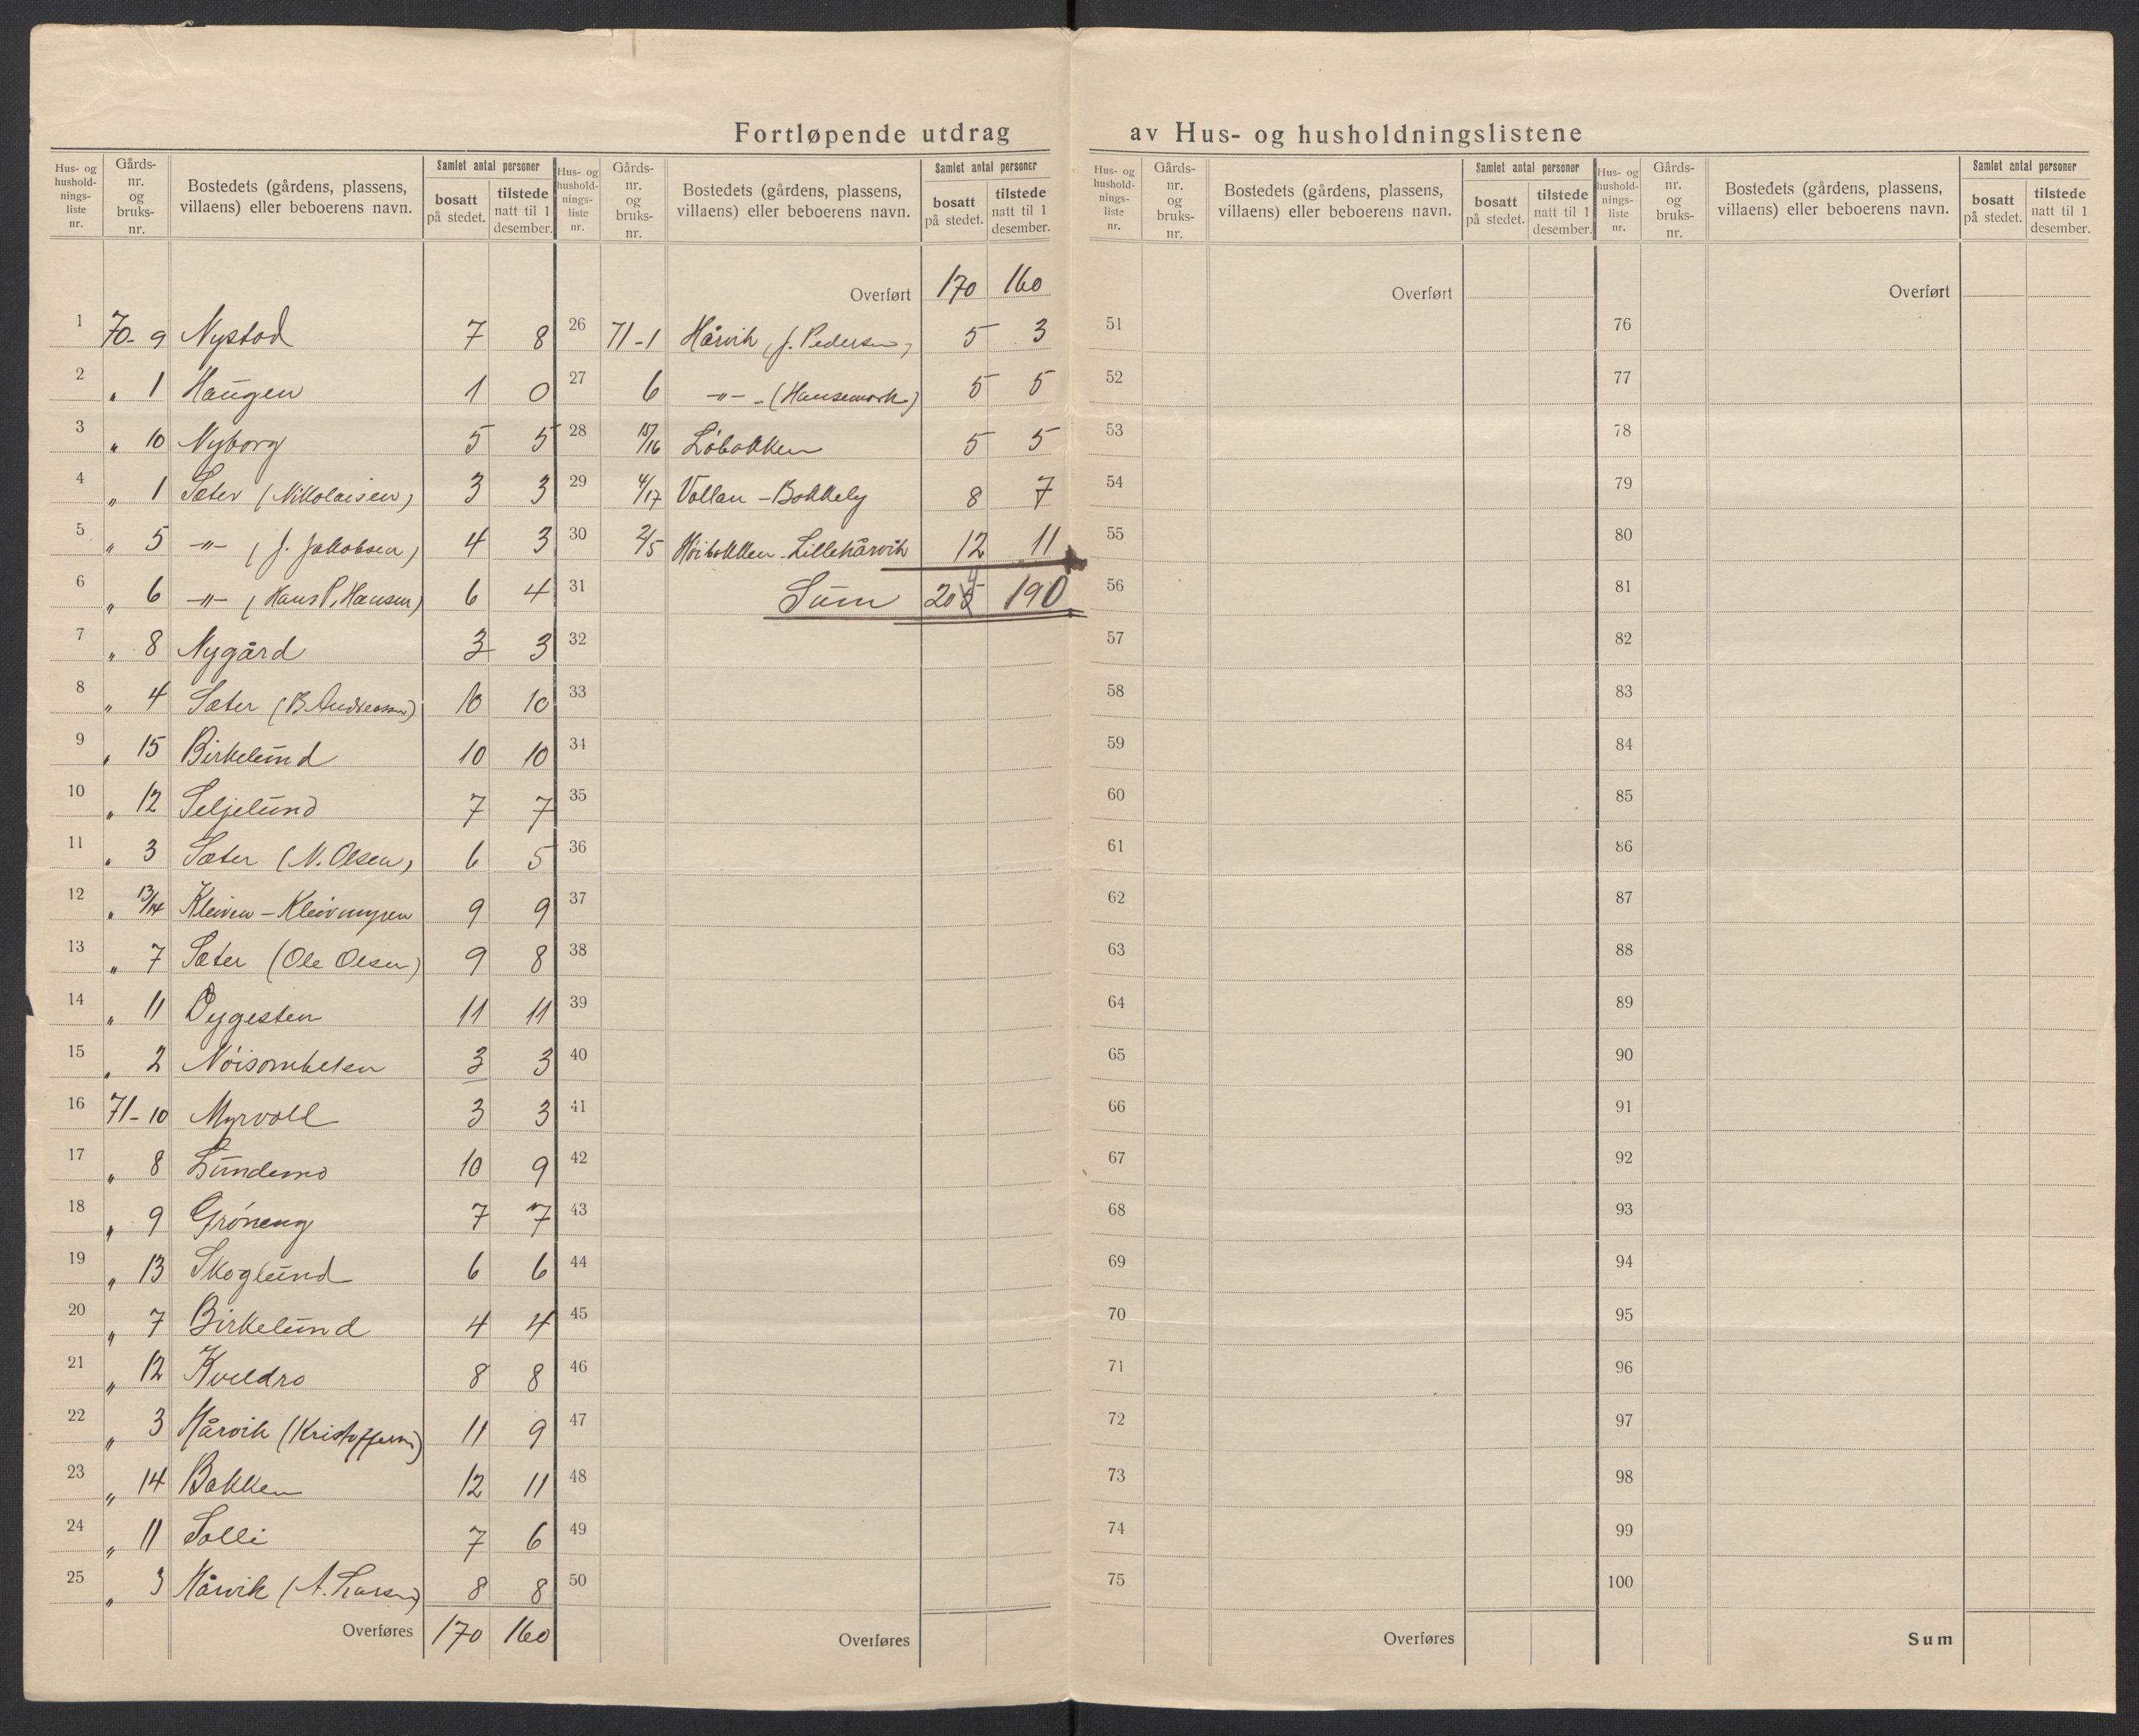 Fortløpende utdrag av Hus- og husholdningslistene
Hus- og hushold- nings- liste nr. | Gårds- nr. og bruks- nr. | Bostedets (gårdens, plassens, villaens) eller beboerens navn. | Samlet antal personer | bosatt på stedet. | tilstede natt til 1 desember.
1 70-9 Nystad 7 8
2 " 1 Haugen 1 0
3 " 10 Nyborg 5 5
4 " 1 Sæter (Nikolaisen) 3 3
5 " 5 -"- (J. Jakobsen) 4 3
6 " 6 -"- (Hans P. Hansen) 6 4
7 " 8 Nygård 3 3
8 " 4 Sæter (B. Andreassen) 10 10
9 " 15 Birkelund 10 10
10 " 12 Seljelund 7 7
11 " 3 Sæter (N. Olsen) 6 5
12 " 13/14 Kleiven - Kleivmyren 9 9
13 " 7 Sæter (Ole Olsen) 9 8
14 " 11 Dygesten 11 11
15 " 2 Nøisomheten 3 3
16 71-10 Myrvoll 3 3
17 " 8 Lundemo 10 9
18 " 9 Grøneng 7 7
19 " 13 Skoglund 6 6
20 " 7 Birkelund 4 4
21 " 12 Kveldro 8 8
22 " 3 Hårvik (Kristoffersen) 11 9
23 " 14 Bakken 12 11
24 " 11 Solli 7 6
25 " 3 Hårvik (A. Larsen) 8 8
Overføres 170 160
Hus- og hushold- nings- liste nr. | Gårds- nr. og bruks- nr. | Bostedets (gårdens, plassens, villaens) eller beboerens navn. | Samlet antal personer | bosatt på stedet. | tilstede natt til 1 desember.
Overført 170 160
26 71-1 Hårvik (J. Pedersen) 5 3
27 6 -"- (Hansemark) 5 5
28 15/16 Løbakken 5 5
29 4/17 Vollan - Bakkely 8 7
30 2/5 Høibakken - Lillehårvik 12 11
31 Sum 205 190
32
33
34
35
36
37
38
39
40
41
42
43
44
45
46
47
48
49
50
Overføres
Hus- og hushold- nings- liste nr. | Gårds- nr. og bruks- nr. | Bostedets (gårdens, plassens, villaens) eller beboerens navn. | Samlet antal personer | bosatt på stedet. | tilstede natt til 1 desember.
Overført
51
52
53
54
55
56
57
58
59
60
61
62
63
64
65
66
67
68
69
70
71
72
73
74
75
Overføres
Hus- og hushold- nings- liste nr. | Gårds- nr. og bruks- nr. | Bostedets (gårdens, plassens, villaens) eller beboerens navn. | Samlet antal personer | bosatt på stedet. | tilstede natt til 1 desember.
Overført
76
77
78
79
80
81
82
83
84
85
86
87
88
89
90
91
92
93
94
95
96
97
98
99
100
Sum